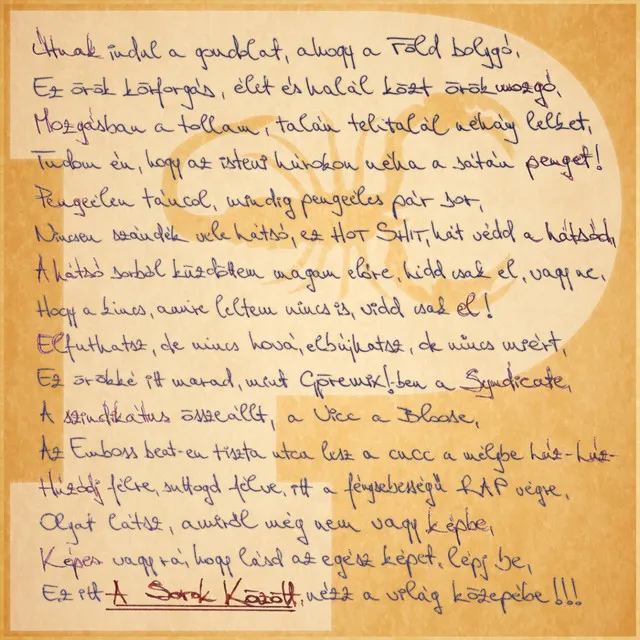 Útnak indul a gondolat, ahogy a Föld bolygó,
Ez örök körforgás, élet és halál közt örök mozgó,
Mozgásban a tollam, talán telitalál néhány lelket,
Tudom én, hogy az isteni húrokon néha a sátán penget!
Pengeélen táncol, mindig pengeéles pár sor,
Nincsen szándék vele hátsó, ez HOT SHIT, hát védd a hátsód,
A hátsó sorból küzdöttem magam előre, hidd csak el, vagy ne,
Hogy a kincs, amire leltem nincs is, vidd csak el!
Elfuthatsz, de nincs hová, elbújhatsz, de nincs miért,
Ez örökké itt marad, mint Gpremix!-ben a Syndicate,
A szindikátus összeállt, a Vicc a Bloose,
Az Emboss beat-en tiszta utca lesz a cucc a mélybe húz-húz-
Húzódj félre, suttogd félve, itt a fénysebességű RAP végre,
Olyat látsz, amiről még nem vagy képbe,
Képes vagy rá, hogy lásd az egész képet, lépj be,
Ez itt A Sorok Között, nézz a világ közepébe!!!